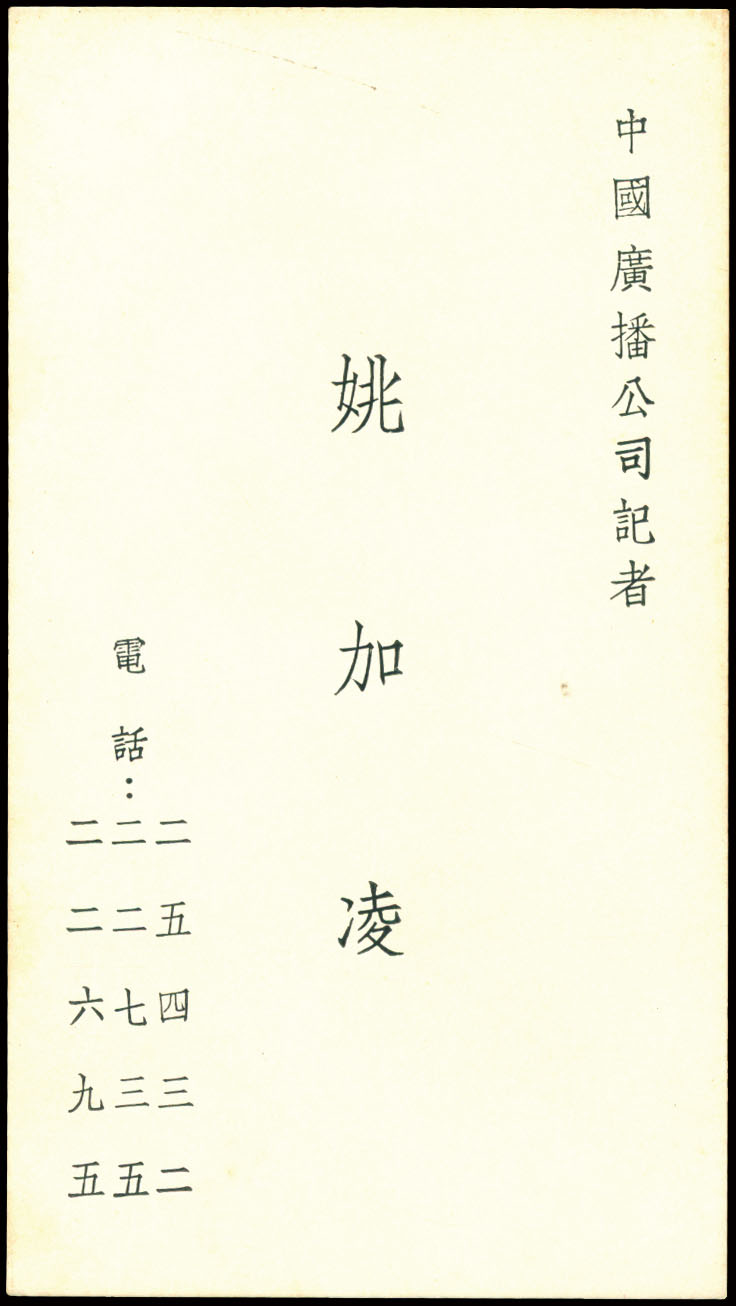 中國廣播公司記者
姚加凌
電話：
二五四三二
二二七三五
二二六九五